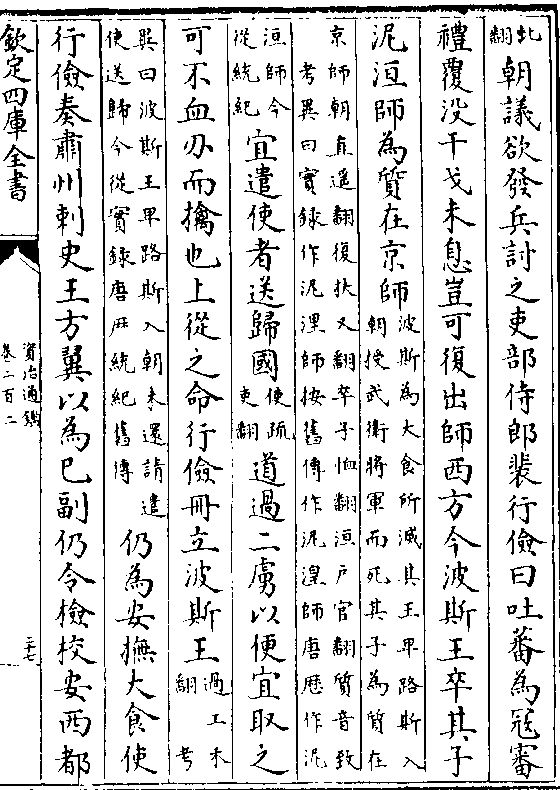 北
翻
朝議欲發兵討之吏部侍郎裴行儉曰吐蕃為冦審
禮覆没干戈未息豈可復出師西方今波斯王卒其子
泥洹師為質在京師
波斯為大食所滅其王卑路斯入
朝授武衛將軍而死其子為質在
京師朝直遥翻復扶又翻卒子恤翻洹戸官翻質音致
考異曰實録作泥浬師按舊傳作泥湟師唐歴作泥
洹師今
從統紀
宜遣使者送歸國
使疏
吏翻
道過二虜以便宜取之
可不血刃而擒也上從之命行儉冊立波斯王
過工禾
翻考
異曰波斯王卑路斯入朝未還請遣
使送歸今從實録唐歴統紀舊傳
仍為安撫大食使
行儉奏肅州刺史王方翼以為已副仍令檢校安西都
欽定四庫全書
資治通鑑
卷二百二